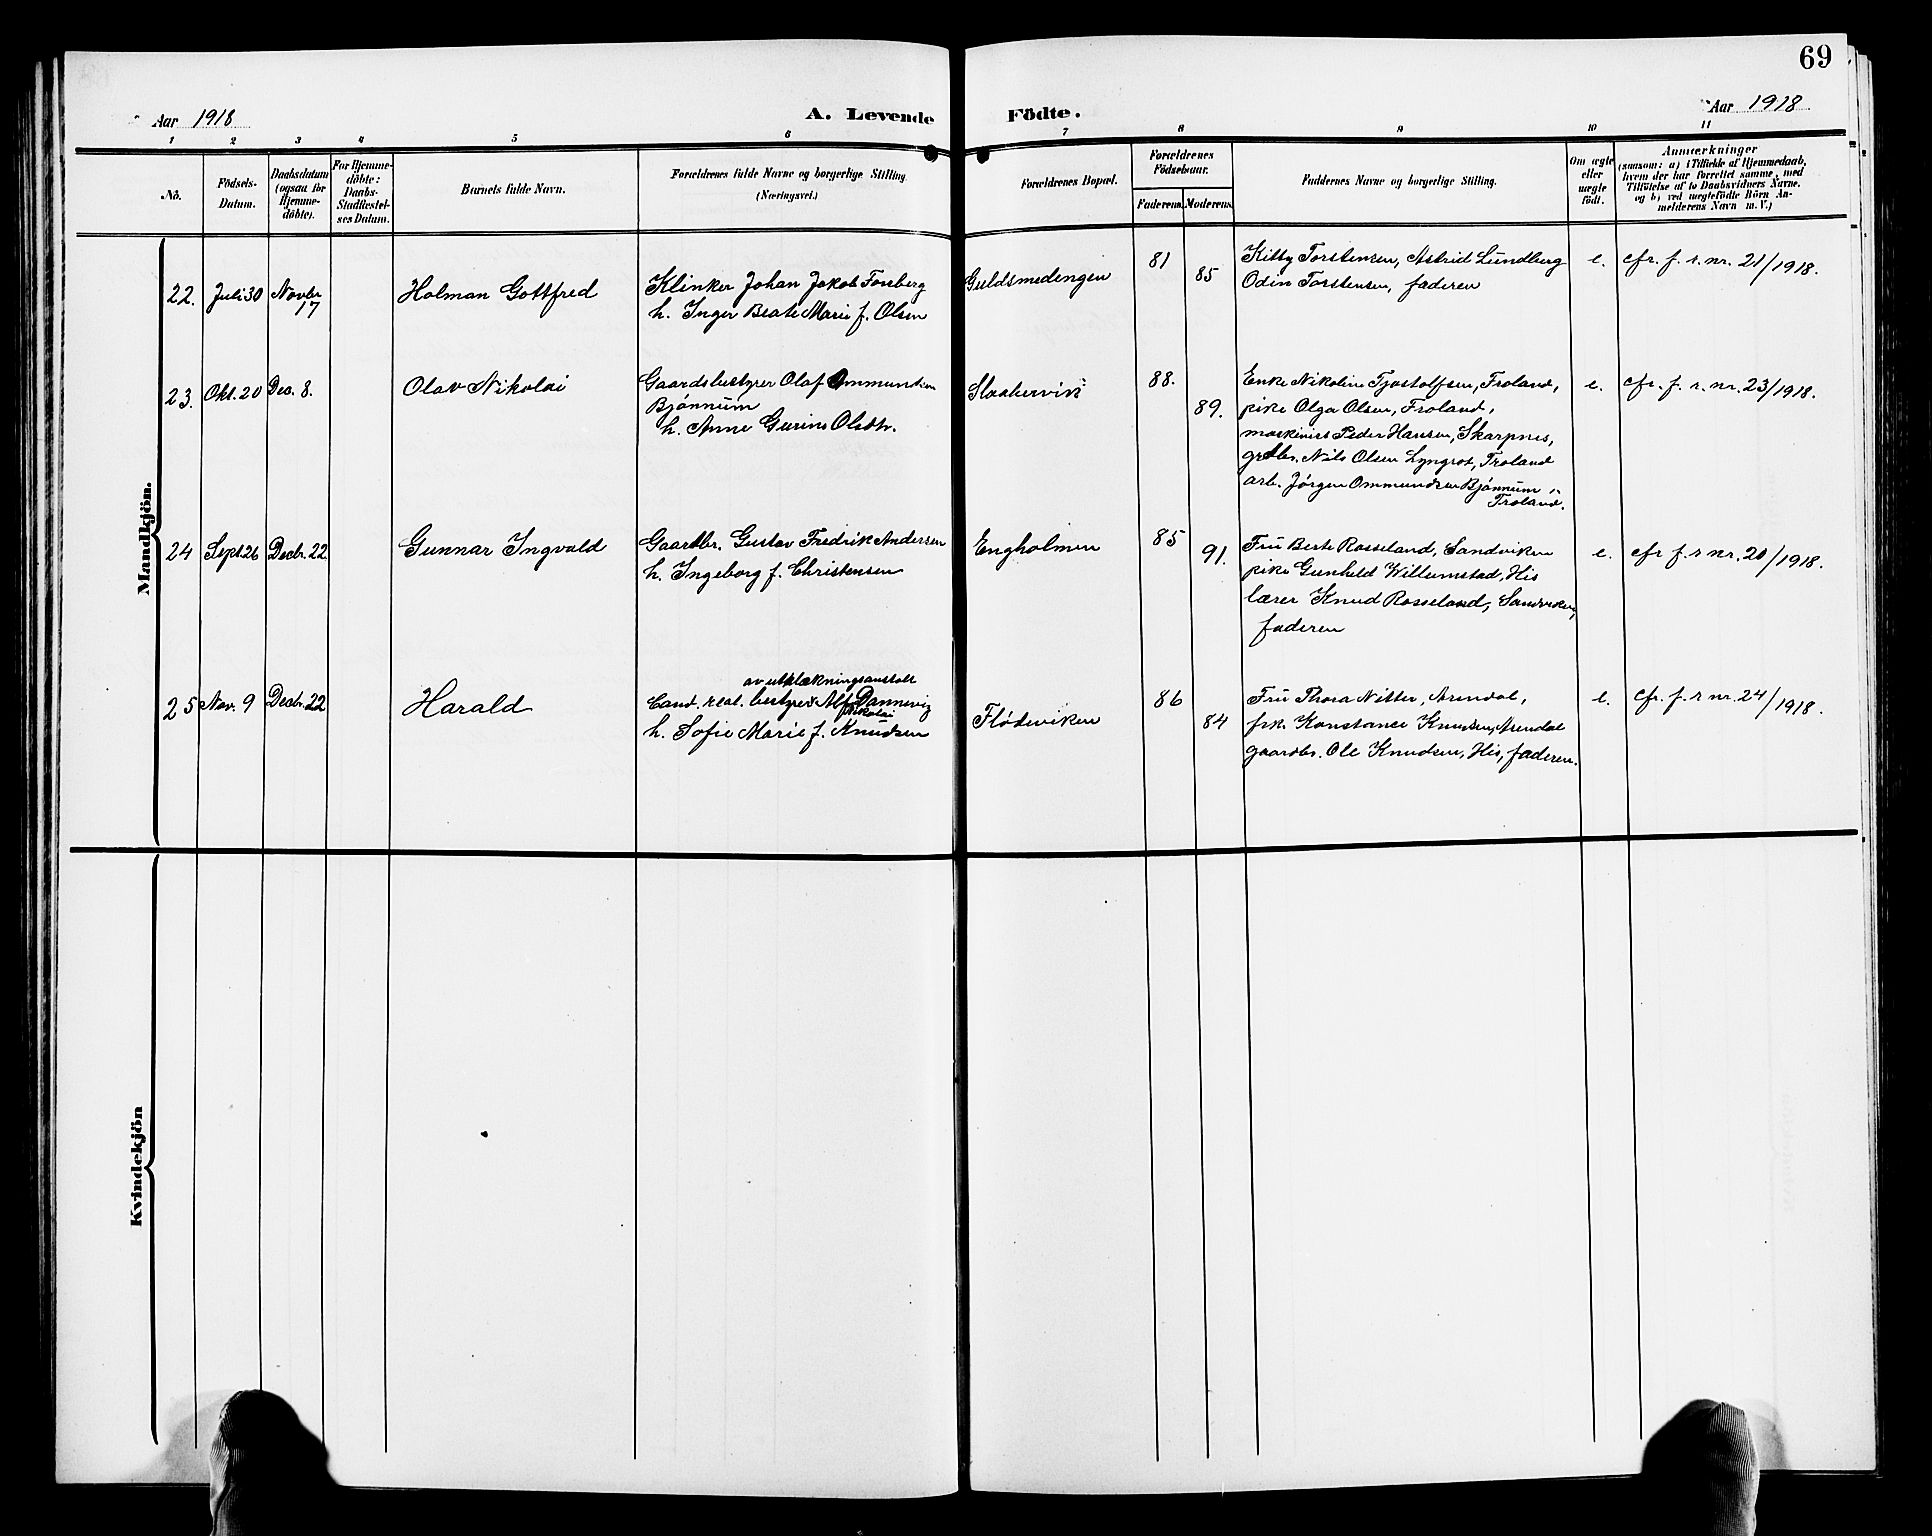 69
Aar 1918
A. Levende Födte.
Aar 1918
1 2 3 4 5 6 7 8 9 10 11
No.
Födsels-
Datum.
Daabsdatum
(ogsaa for
Hjemme-
döbte).
For Hjemme-
döbte:
Daabs-
Stadfæstel-
ses Datum.
Barnets fulde Navn.
Forældrenes fulde Navne og borgerlige Stilling.
(Næringsvei.)
Forældrenes Bopæl.
Forældrenes
Födselsaar.
Faderens. Moderens.
Faddernes Navne og borgerlige Stilling.
Om ægte
eller
uægte
födt.
Anmærkninger
(saasom: a) i Tilfælde af Hjemmedaab,
hvem der har forrettet samme, med
Tilföielse af to Daabsvidners Navne,
og b) ved uægtefödte Börn An-
melderens Navn m. V.)
Mandkjön.
22. Juli 30 Novbr
17
Holman Gottfred
Klinker Johan Jakob Forsberg
h. Inger Beate Marie f. Olsen
Guldsmedengen
81
85
Kitty Torstensen, Astrid Lundberg
Odin Torstensen, faderen
e.
cfr. f. r. nr. 21/1918.
23. Okt. 20 Dec. 8.
Olav Nikolai
Gaardsbestyrer Olaf Ommundsen
Bjönnum
h. Anne Gurine Olsdtr.
88.
89.
Enke Nikoline Tjostolfsen, Froland,
pike Olga Olsen, Froland,
maskinist Peder Hansen, Skarpnes,
grdbr. Nils Olsen Lyngrot, Froland
arb. Jörgen Ommundsen Bjönnum,
Froland.
e.
cfr. f. r. nr. 23/1918.
24 Sept. 26 Decbr. 22
Gunnar Ingvald
Gaardbr. Gustav Fredrik Andersen
h. Ingeborg f. Christensen
Engholmen
85
91.
Fru Berte Rosseland, Sandviken
pike Gunhild Willumstad, His
lærer Knud Rosseland, Sandviken,
faderen
e.
cfr f. r nr. 20/1918.
25 Nov. 9 Decbr. 22
Harald
av utklækningsanstalt
Cand. real. bestyrer Alf Dannevig
Nikolai
h. Sofie Marie f. Knudsen
Flödeviken
86
84
Fru Thora Nitter, Arendal,
frk. Konstance Knudsen, Arendal
gaardbr. Ole Knudsen, His, faderen.
e.
cfr. f. r nr. 24/1918.
Kvindekjön